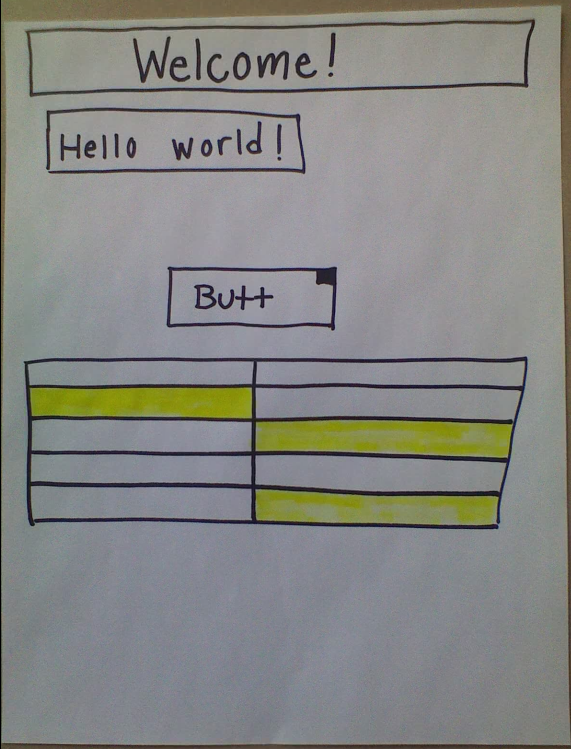 Welcome!
Hello world!
Butt